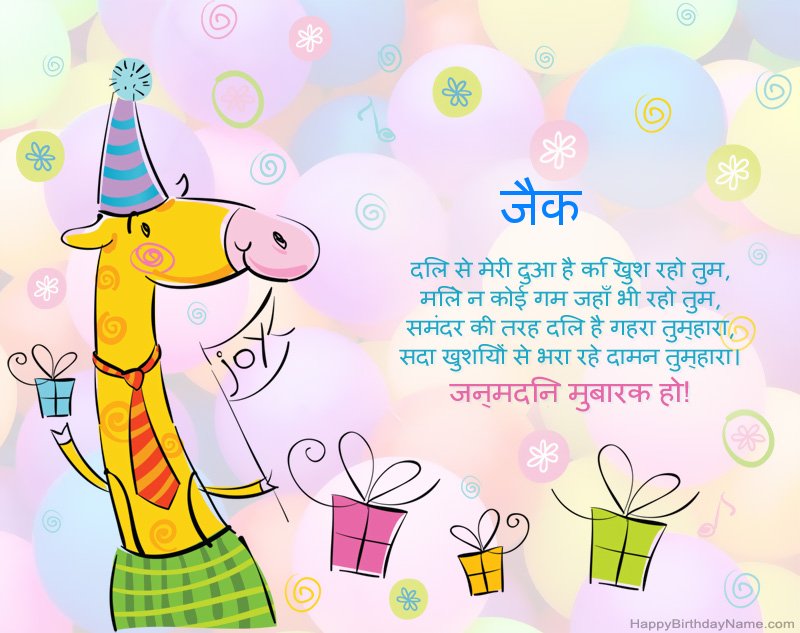 जैक
दिल से मेरी दुआ है कि खुश रहो तुम,
मिले न कोई गम जहाँ भी रहो तुम,
समंदर की तरह दिल है गहरा तुम्हारा,
सदा खुशियों से भरा रहे दामन तुम्हारा।
जन्मदिन मुबारक हो!
joy
HappyBirthdayName.com